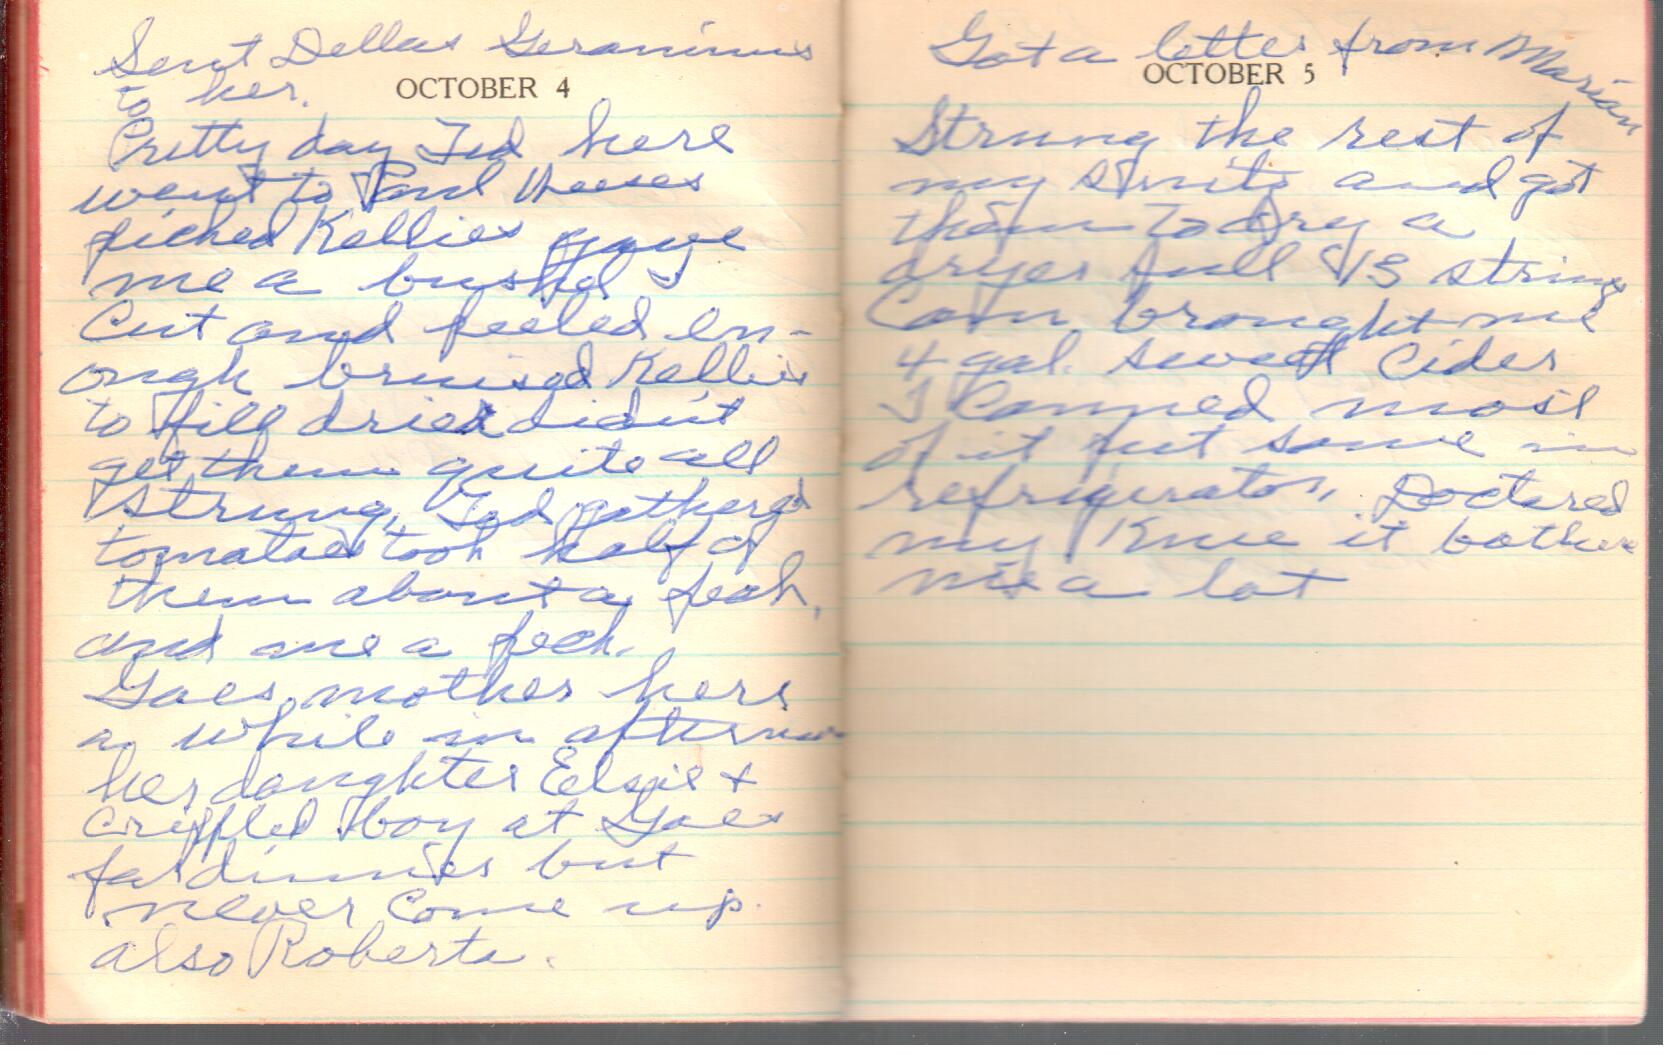 Sent Dellas Geraniums
to her.
OCTOBER 4
Pretty day Ted here
went to Paul
picked Kellies gave
me a bushel I
Cut and peeled en-
ough bruised Kellies
to fill drier didn't
get them quite all
strung, Ted gathered
tomatoes took half of
them about a peck,
and me a peck.
Goes mother here
a while in afternoon
her daughter Elsie +
crippled boy at Goes
for dinner but
never come up.
also Roberta.
Got a letter from Marian
OCTOBER 5
Strung the rest of
my Snits and got
them to dry a
dryer full 13 string
Corn brought me
4 gal. sweet Cider
I Canned most
of it put some in
refrigerator. Doctored
my Knee it bothers
me a lot